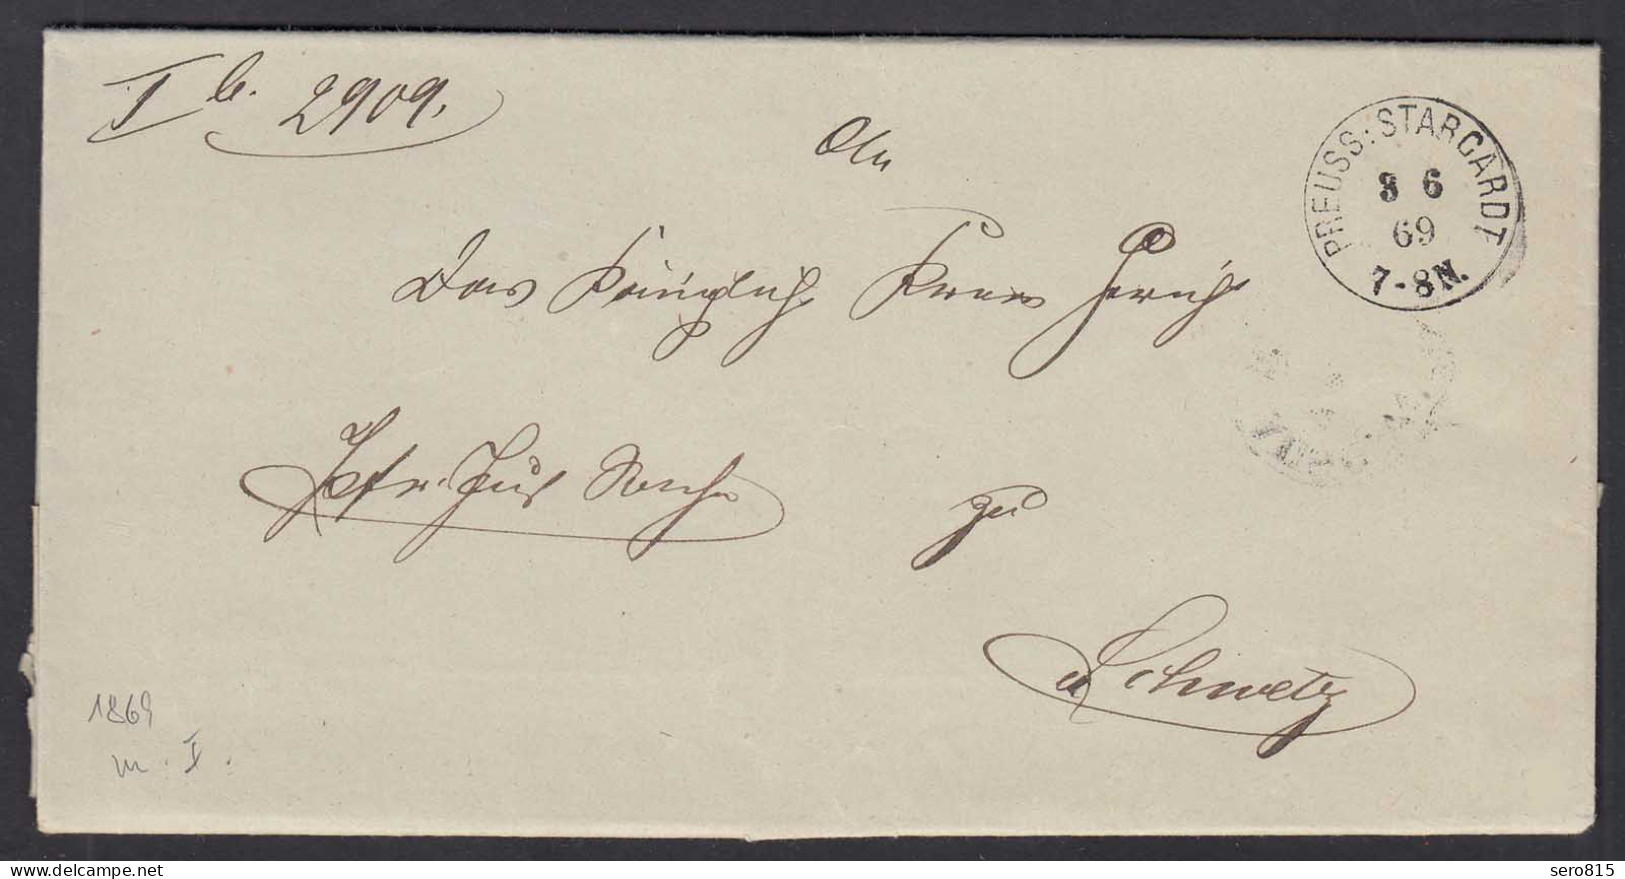 I b. 2909.
An
Das Königliche Kreis Gericht
PREUSS: STARGARDT
3 6
69
7-8N.
zu
Schwetz
1869
m. I.
sero815